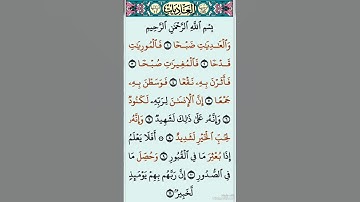 العاديات
بِسْمِ ٱللَّهِ ٱلرَّحْمَٰنِ ٱلرَّحِيمِ
وَٱلْعَٰدِيَٰتِ ضَبْحًا ۝١ فَٱلْمُورِيَٰتِ
قَدْحًا ۝٢ فَٱلْمُغِيرَٰتِ صُبْحًا ۝٣
فَأَثَرْنَ بِهِۦ نَقْعًا ۝٤ فَوَسَطْنَ بِهِۦ
جَمْعًا ۝٥ إِنَّ ٱلْإِنسَٰنَ لِرَبِّهِۦ لَكَنُودٌ
۝٦ وَإِنَّهُۥ عَلَىٰ ذَٰلِكَ لَشَهِيدٌ ۝٧ وَإِنَّهُۥ
لِحُبِّ ٱلْخَيْرِ لَشَدِيدٌ ۝٨ ۞ أَفَلَا يَعْلَمُ
إِذَا بُعْثِرَ مَا فِى ٱلْقُبُورِ ۝٩ وَحُصِّلَ مَا
فِى ٱلصُّدُورِ ۝١٠ إِنَّ رَبَّهُم بِهِمْ يَوْمَئِذٍ
لَّخَبِيرٌۢ ۝١١